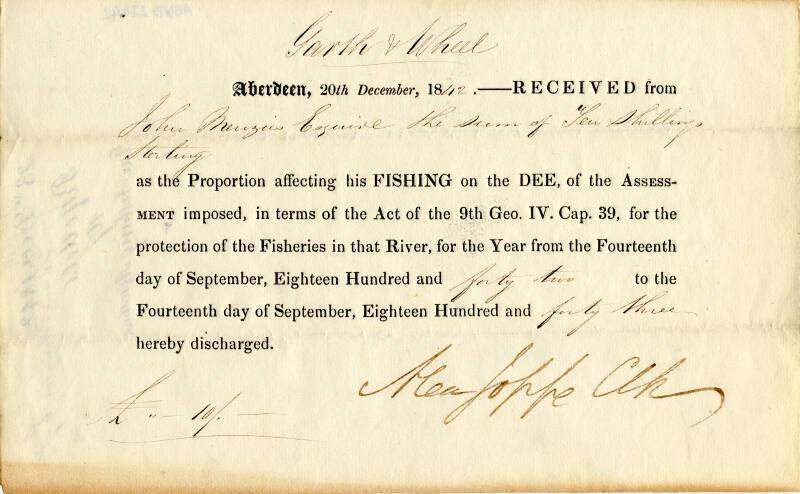 Garth & Wheel
Aberdeen, 20th December, 1842.—RECEIVED from
John Menzies Esquire the sum of Ten Shillings
Sterling
as the Proportion affecting his FISHING on the DEE, of the ASSESS-
MENT imposed, in terms of the Act of the 9th Geo. IV. Cap. 39, for the
protection of the Fisheries in that River, for the Year from the Fourteenth
day of September, Eighteen Hundred and forty two to the
Fourteenth day of September, Eighteen Hundred and forty three
hereby discharged.
Alex Joppe Clk
£ " - 10/. -